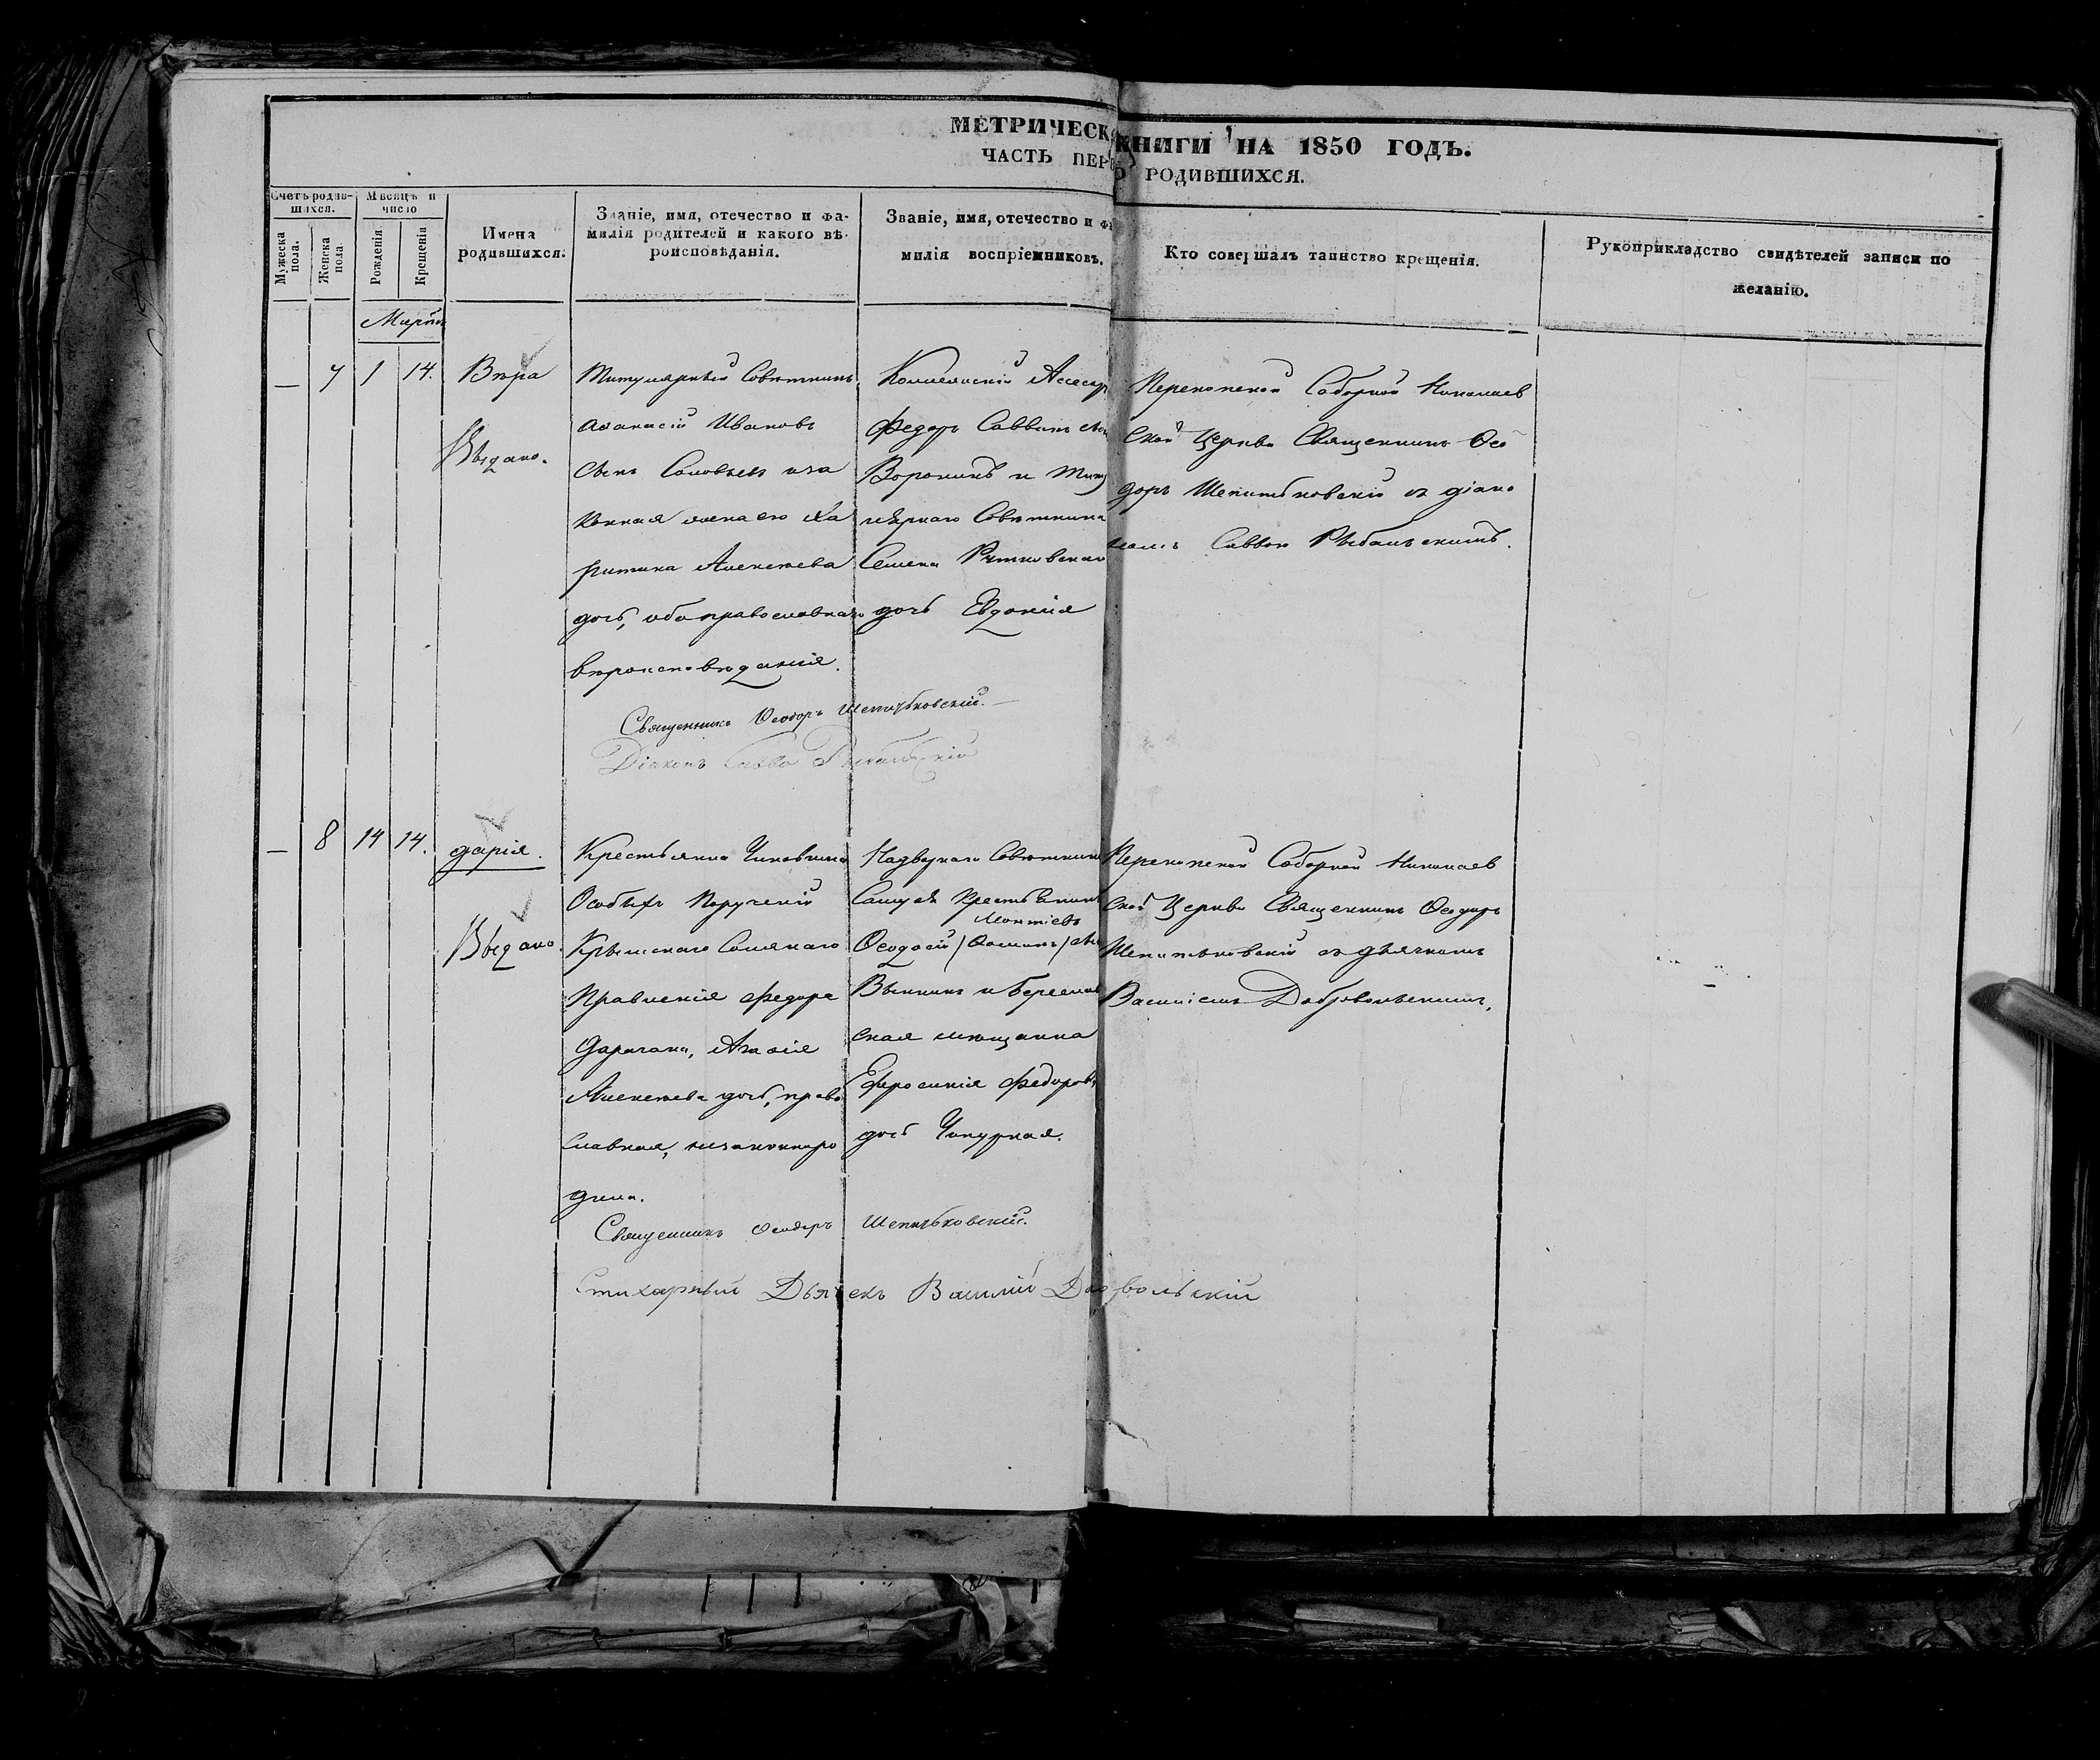 МЕТРИЧЕСК КНИГИ НА 1850 ГОДЪ.
ЧАСТЬ ПЕР РОДИВШИХСЯ.
Счетъ родив-
шихся.
Мужеска
пола.
Женска
пола
Мѣсяцъ и
число
Рожденія
Крещенія
Имена
родившихся.
Званіе, имя, отечество и фа-
милія родителей и какого вѣ-
роисповѣданія.
Званіе, имя, отечество и ф
милія воспріемниковъ.
Кто совершалъ таинство крещенія.
Рукоприкладство свидѣтелей записи по
желанію.
Мартъ
— 7 1 14.
Вѣра
Выдано.
Титулярный Совѣтникъ
Аѳанасій Ивановъ
сынъ Соловьевъ и за
конная жена его Ха
ритина Алексѣева
дочь, оба православнаго
вѣроисповѣданія.
Коллежскій Асесор
Федоръ Саввинъ сын
Воронинъ и Титу
лярнаго Совѣтника
Семена Рутковскаго
дочь Евдокія
Перекопской Соборной Николаев
ской Церкви Священникъ Ѳео
доръ Шепитьковскій съ діако
номъ Саввою Рыбальскимъ.
Священникъ Ѳеодоръ Шепитьковскій.
Діаконъ Савва Рыбальскій
— 8 14 14.
Дарія.
Выдано.
Крестьянка Чиновника
Особыхъ Порученій
Крымскаго Солянаго
Правленія Федора
Дарагана, Агафія
Алексѣева дочь, право
славная, незаконноро
дила.
Надворнаго Совѣтника
крестьянинъ
Леонтіевъ
Ѳеодосій /Ѳоминъ/ сы
ская мѣщанка
Ефросинія Федоров
дочь Чапурная.
Перекопской Соборной Николаев
ской Церкви Священникъ Ѳеодоръ
Шепитьковскій съ дьячкомъ
Василіемъ Добровольскимъ.
Священникъ Ѳеодоръ Шепитьковскій.
Стихарный Дьячекъ Василій Добровольскій